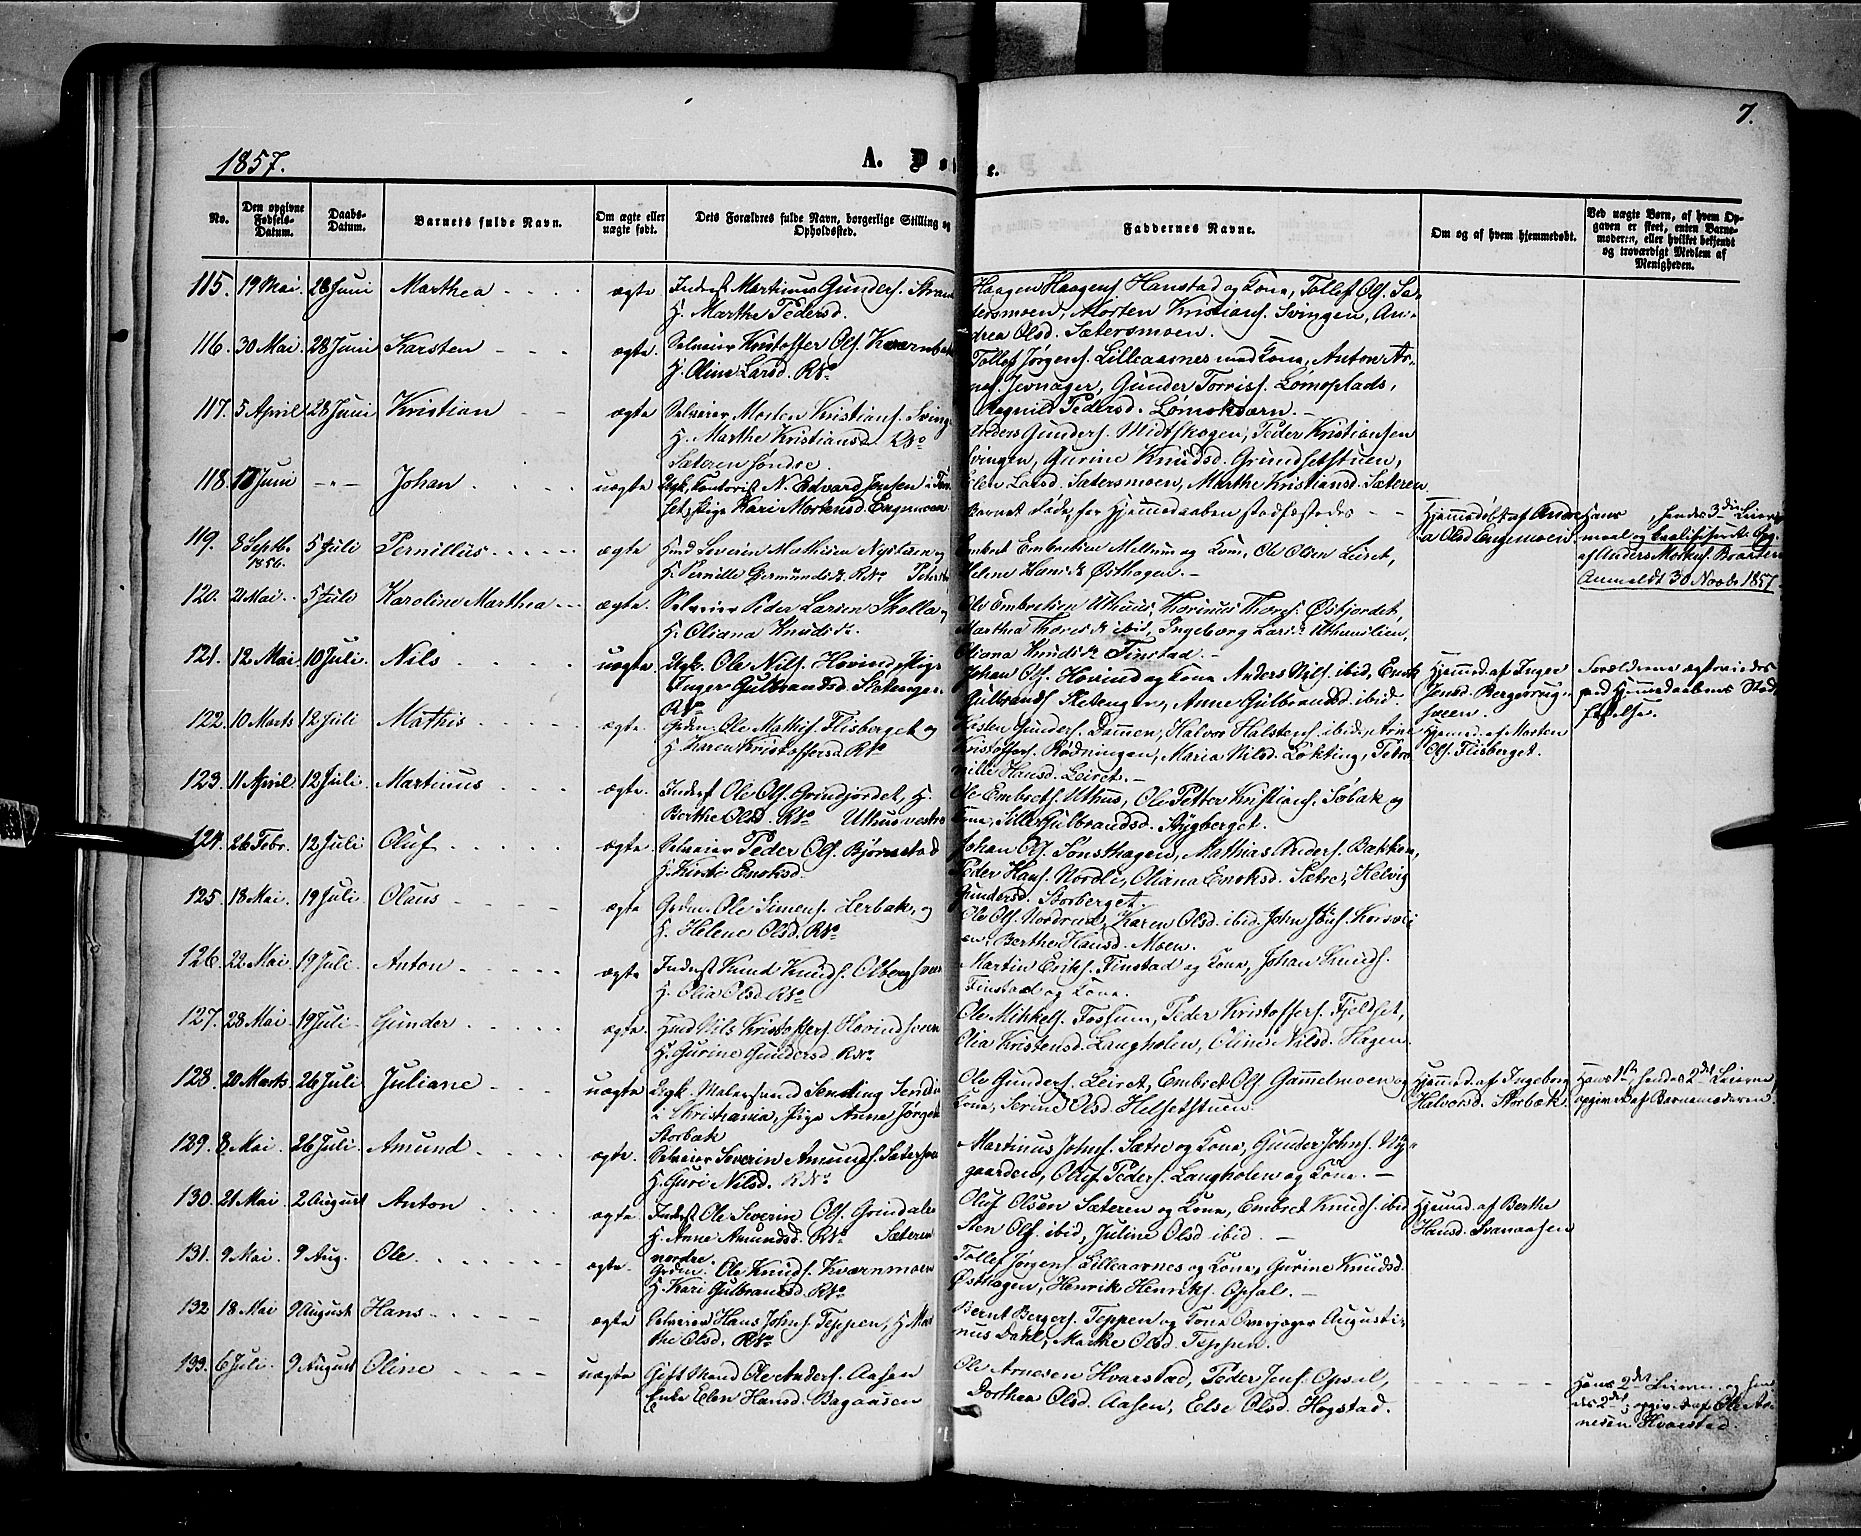 7.
1857.
A. D
e.
No.
Den opgivne Fødsels-Datum.
Daabs-Datum.
Barnets fulde Navn.
Om ægte eller uægte født.
Dets Forældres fulde Navn, borgerlige Stilling og Opholdssted.
Faddernes Navne.
Om og af hvem hjemmedøbt.
Ved uægte Børn, af hvem Opgaven er skeet, enten Barnemoderen, eller hvilket bekjendt og troværdigt Medlem af Menigheden.
115. 19 Mai. 28 Juni Marthea ægte Inderst Martinus Gunders. Stran
H. Marthe Pedersd.
Haagen Haagens. Hanstad og Kone, Tollef Ols. Sæ-
tersmoen, Morten Kristians. Svingen, An-
drea Olsd. Sætersmoen.
116. 30 Mai 28 Juni Karsten ægte. Selveier Kristoffer Ols. Kværnbæk
H. Oline Larsd. Rst
Tollef Jørgens. Lilleaarnes med Kone, Anton Ar-
nes. Jernager, Gunder Torriss. Lømoplads,
Ragnild Pedersd. Lømokværn.
117. 5 April 28 Juni Kristian ægte Selveier Morten Kristians. Sving
H. Marthe Kristiansd. Rst
Sæteren søndre.
Anders Gunders. Midtskogen, Peder Kristiansen
Svingen, Gurine Knudsd. Grundsetstuen,
Elen Larsd. Sætersmoen, Marthe Kristiansd. Sæteren
118. 17 Juni -"- Johan uægte Ugk. Kontorist N. Edvard Jensen i
set, Pige Kari Mortensd. Engemoen
Barnet døde, før Hjemmedaaben stadfæstedes - -
Hjemmedøbt af Andre
a Olsd Engemoen
Hans , hendes 3die Leier
maal
af Anders Mortens. Braaten
Anmeldt 30 Novbr 1857.
119. 8 Septb. 1856. 5 Juli Pernillus ægte Hmd Severin Mathisen Nystuen og
H. Pernille Germundsdr. Rst
Embret Embretsen Mellum og Kone, Ole Olsen Leiret,
Helene Hansdr Østhagen.
120. 2 Mai 5 Juli Karoline Marthea ægte Selveier Peder Larsen Skolla,
H. Oliana Knudsdr.
Ole Embretsen Uthuus, Thorinus Thores. Østjordet,
Marthea Thoresdr ibid, Ingeborg Larsdr Uthuuslien,
Oliana Knudsdr Finstad.
121. 12 Mai 10 Juli. Nils uægte. Ugk. Ole Nils. Hovind, Pige
Inger Gulbrandsd. Sletengen
Rst
Johan Ols. Hovind og Kone Anders Nils. ibid, Enok
Gulbrands. Sletengen, Anne Gulbrandsd. ibid.
Hjemmed. af Inger
Jensd. Bergersvig-
sveen.
Forældrene ægteviedes
ved Hjemmedaabens Stad-
fæstelse.
122. 10 Marts 12 Juli Mathis ægte. Grdm. Ole Mathis. Flisberget og
H. Karen Kristoffersd. Rst
Kristen Gunders. Dammen, Halvor Halstens. ibid, Arne
Kristoffers. Rødningen, Maria Nilsd. Løkting, Per-
nille Hansd. Leiret.
Hjemmed. af Morten
Ols. Flisberget.
123. 11 April 12 Juli. Martinus ægte. Inderst Ole Ols. Grindjordet, H.
Berthe Olsd. Rst Uthus vestre
Ole Embrets. Uthus, Ole Petter Kristians. Søbak og
Kone, Sille Gulbrandsd. Stygberget.
124. 26 Febr. 12 Juli Oluf ægte. Selveier Peder Ols. Bjørnstad
H. Kirsti Enoksd.
Johan Ols. Sønsthagen, Mathias Anders. Bakken,
Peder Hans. Nordli, Oliana Enoksd. Sætre, Helvig
Gundersd. Storberget.
125. 18 Mai. 19 Juli Olaus ægte Grdm. Ole Simens. Lerbak, og
H. Helene Olsd. Rst
Ole Ols. Nordrud, Karen Olsd. ibid. John
en, Berthe Hansd. Moen.
126. 22 Mai. 19 Juli. Anton ægte. Inderst Knud Knuds. Olbergsveen
H. Olia Olsd. Rst
Martin Eriks. Finstad og Kone, Johan Knuds.
Finstad og Kone.
127. 28 Mai. 19 Juli Gunder ægte. Hmd Nils Kristoffers. Hovindsveen
H. Gurine Gundersd. Rst
Ole Mikkels. Fossum, Peder Kristoffers. Fjeldset,
Olia Kristensd. Langholen, Oline Nilsd. Hagen.
128. 20 Marts 26 Juli Juliane uægte Ugk. Malersvend Sending
i Christiania, Pige Anne Jørgens
Storbæk
Ole Gunders. Leiret, Embret Ols. Gammelmoen og
Kone, Serine Olsd. Helsetstuen.
Hjemmed. af Ingeborg
Halvorsd. Storbæk.
Hans 1ste, hendes 2det Leierm.
opgivet af Barnemoderen.
129. 8 Mai 26 Juli Amund ægte. Selveier Severin Amunds. Sætersveen
H. Guri Nilsd. Rst
Martinus Johns. Sætre og Kone, Gunder Johns. Ny-
gaarden, Oluf Peders. Langholen og Kone.
130. 21 Mai 2 August Anton ægte. Inderst Ole Severin Ols. Grindalen
H. Anne Amundsd. Rst Sæteren
nordre.
Oluf Olsen Sæteren og Kone, Embret Knuds. ibid
Sten Ols. ibid, Juline Olsd ibid.
Hjemmed af Berthe
Hansd. Svenaasen
131. 9 Mai 9 Aug. Ole ægte. Grdm. Ole Knuds. Kværnmoen
H. Kari Gulbrandsd. Rst
Tollef Jørgens. Lilleaarnes og Kone, Gurine Knudsd.
Østhagen, Henrik Henriks. Opsal.
132 18 Mai 9 August Hans ægte Selveier Hans Johns. Teppen, H. Mar
the Olsd. Rst
Bernt Bergers. Teppen og Kone Augusti-
nus Dahl, Marthe Olsd. Teppen.
133. 6 Juli. 9 August Oline uægte Gift Mand Ole Anders. Aasen
Enke Elen Hansd. Bagaasen
Ole Arnesen Hvarstad, Peder Jens. Opsal,
Dorthea Olsd. Aasen, Else Olsd. Hogstad.
Hans 2det Leierm. og hen
des 2det, opgivet af Ole Ar-
nesen Hvarstad.